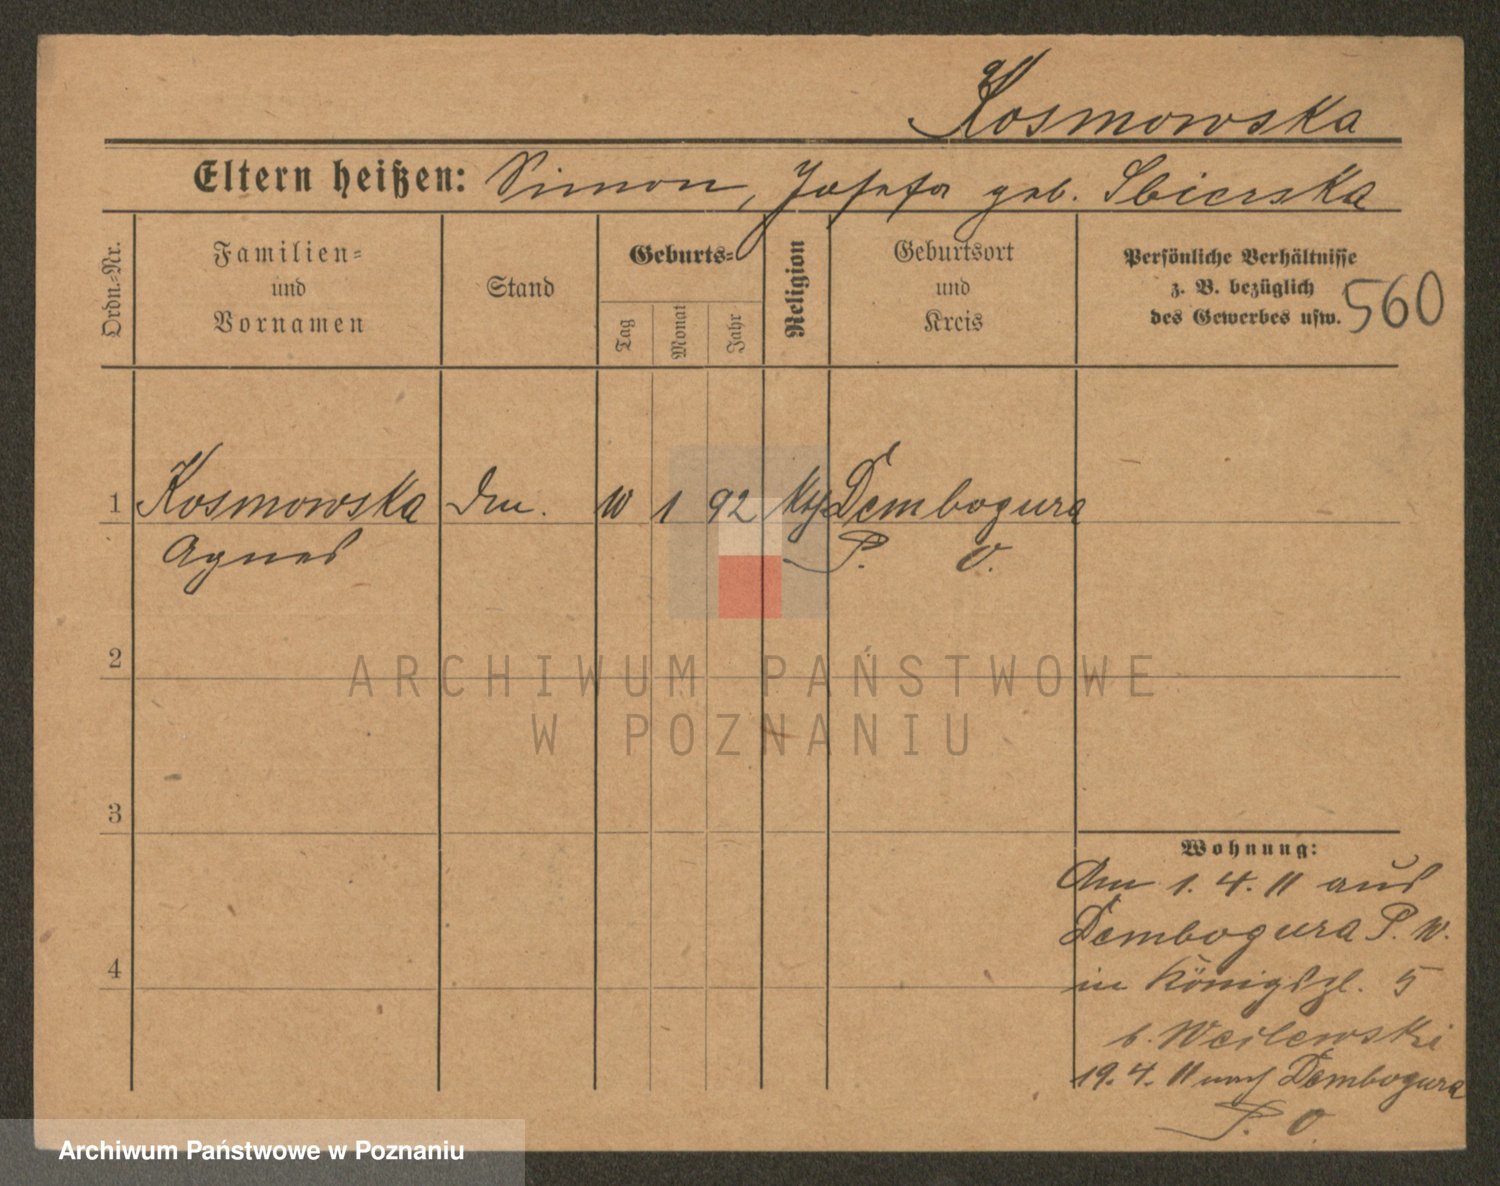 Kosmowska
Eltern heißen: Simon, Josefa geb. Sbierska
Ordn.=Nr.
Familien=
und
Vornamen
Stand
Geburts=
Tag
Monat
Jahr
Religion
Geburtsort
und
Kreis
Persönliche Verhältnisse
z. B. bezüglich
des Gewerbes usw.
560
1 Kosmowska Dm. 10 1 92 kth Dembogura
Agnes P. O.
2
3
4
Wohnung:
Am 1. 4. 11 aus
Dembogura P. W.
in Königspl. 5
b.
19. 4. 11 nach Dembogura
P. O.
ARCHIWUM PAŃSTWOWE
W POZNANIU
Archiwum Państwowe w Poznaniu